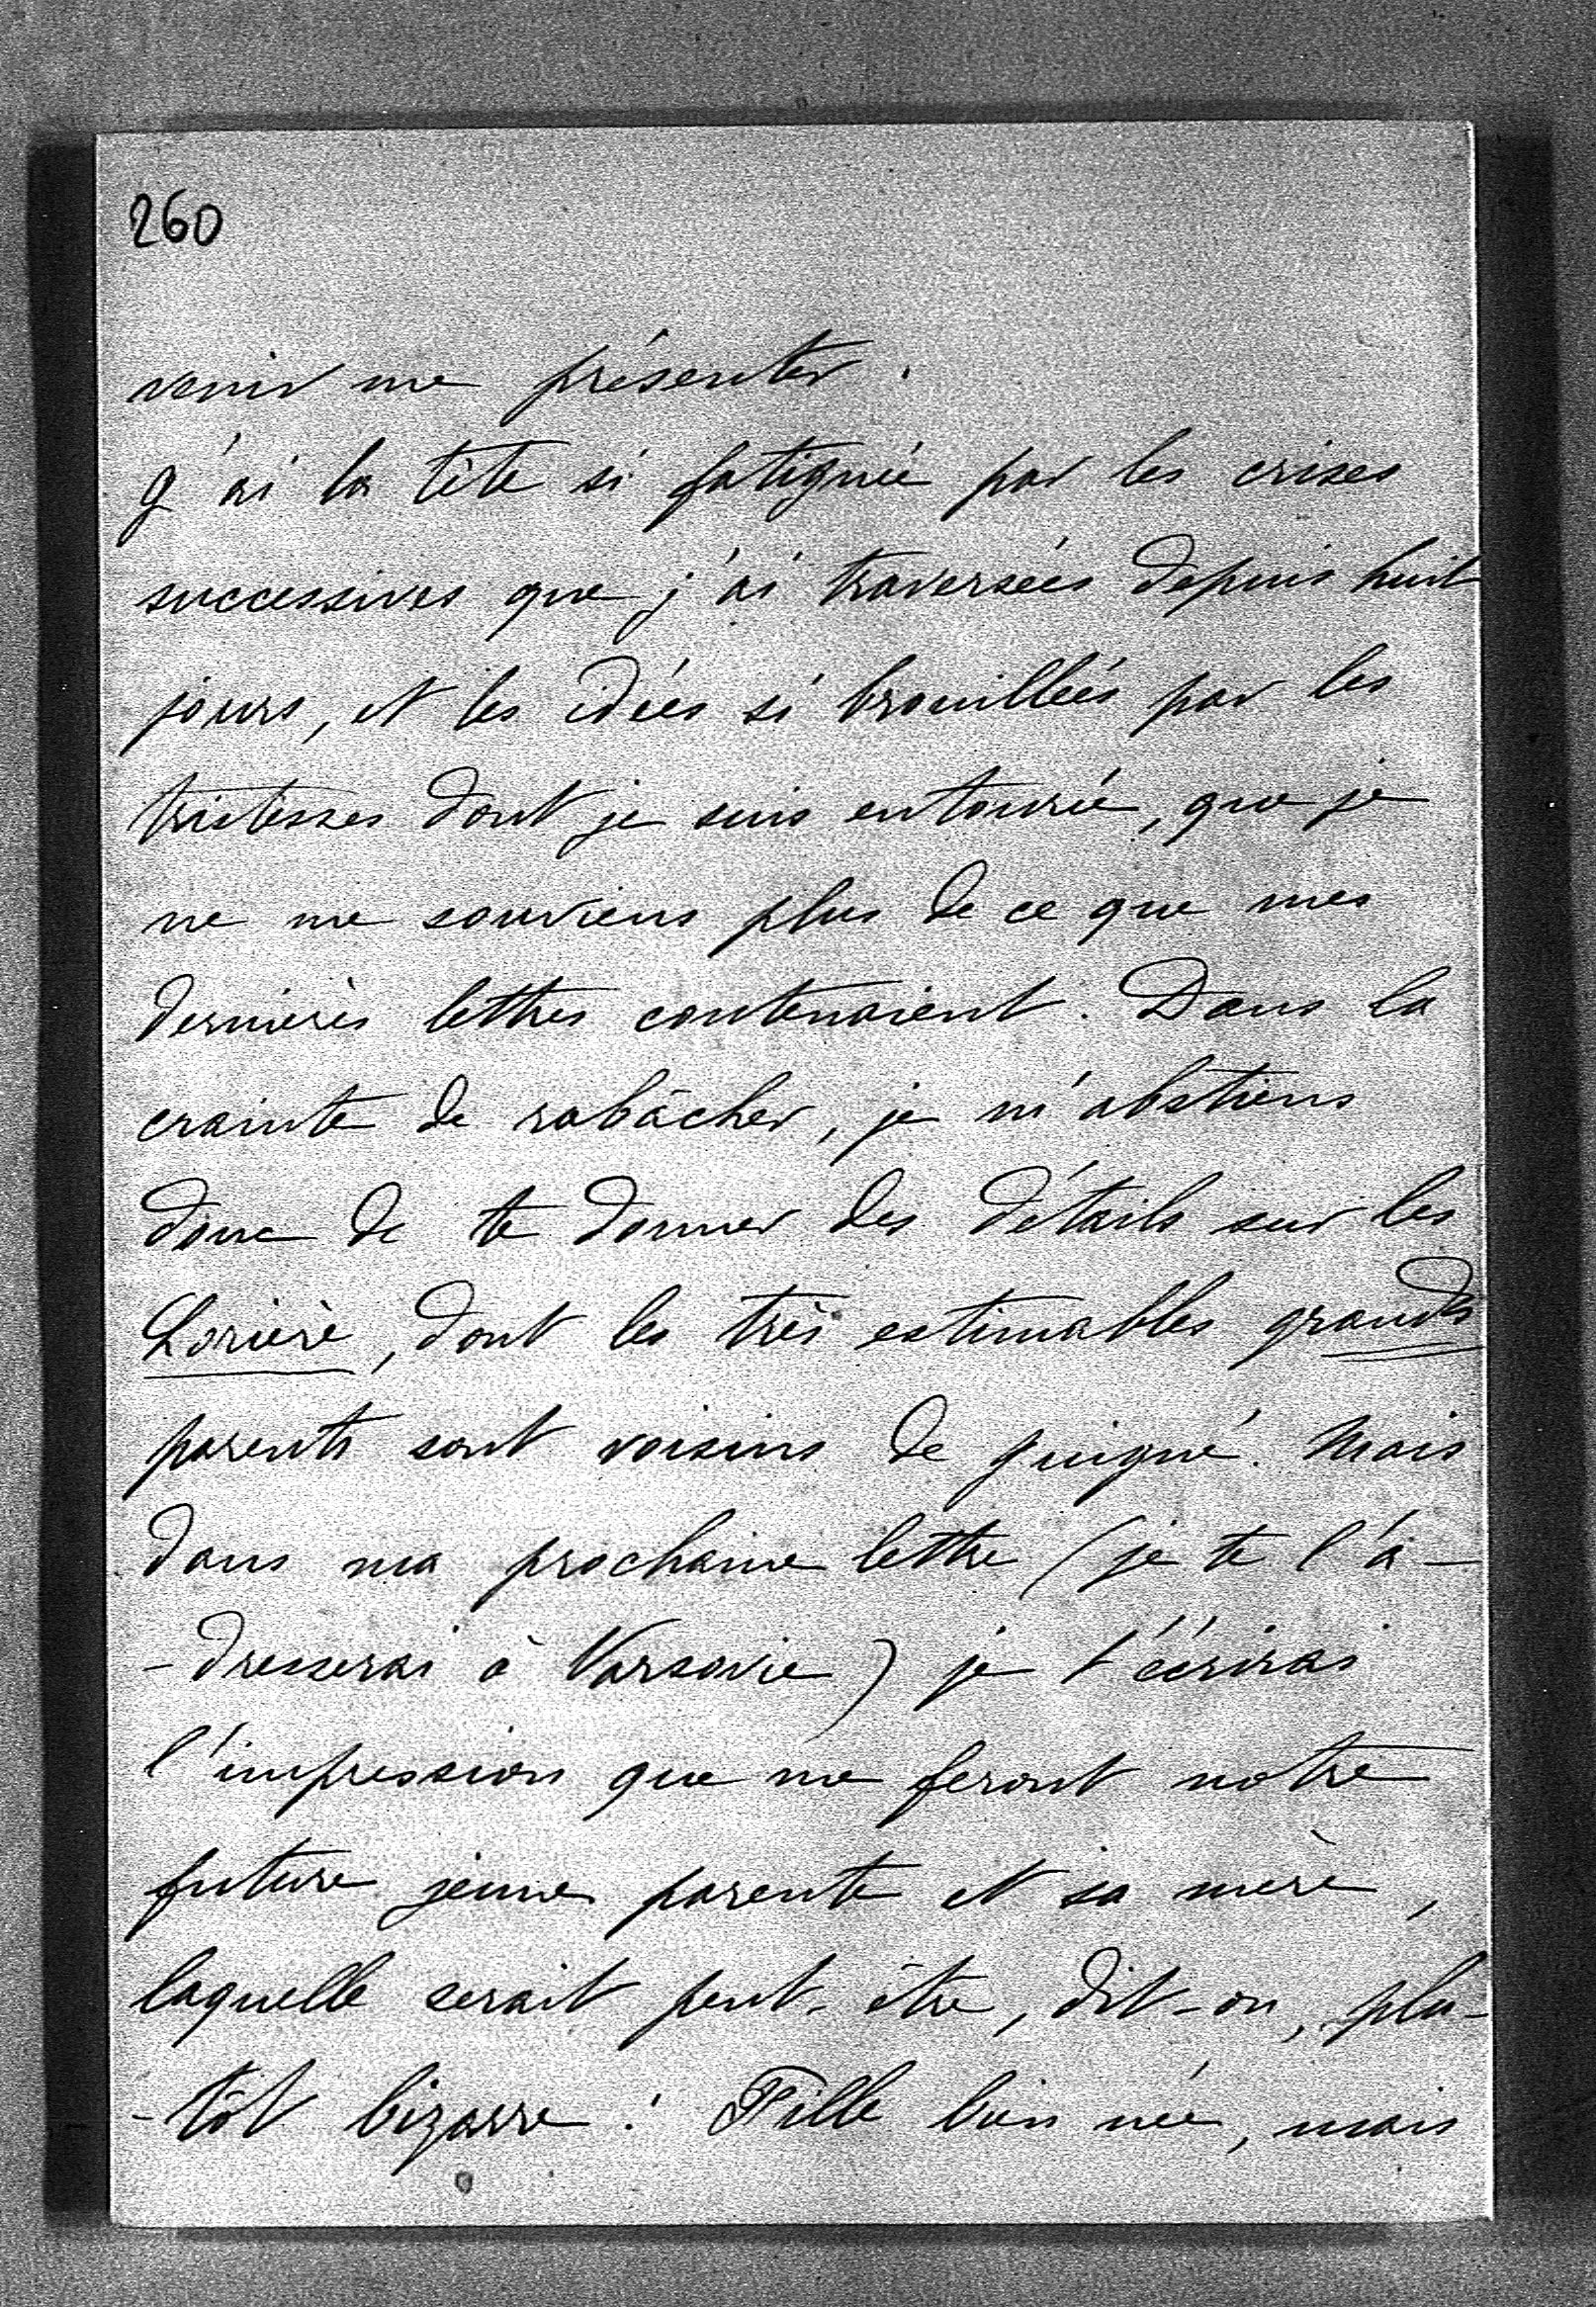 260
venir me présenter.
J'ai la tête si fatiguée par les crises
successives que j'ai traversées depuis huit
jours, et les idées si brouillées par les
tristesses dont je suis entourée, que je
ne me souviens plus de ce que mes
dernières lettres contenaient. Dans la
crainte de rabâcher, je m'abstiens
donc de te donner des détails sur les
Lorière, dont les très estimables grands
parents sont voisins de Juigné. Mais
dans ma prochaine lettre (je te l'a-
-dresserai à Varsovie) je t'écrirai
l'impression que me feront notre
future jeune parente et sa mère,
laquelle serait peut-être, dit-on, plu-
-tôt bizarre! Fille bien née, mais